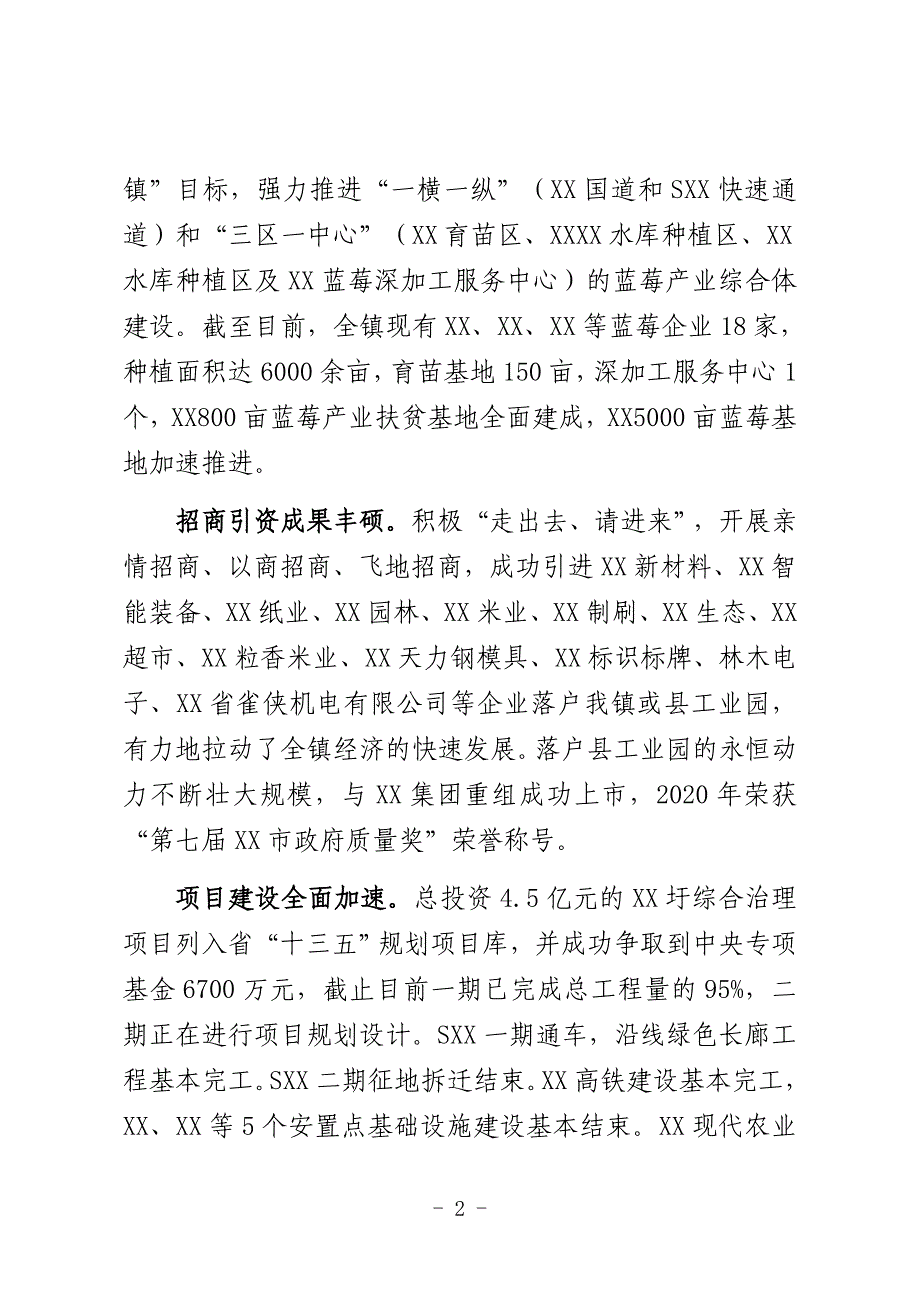 镇”目标，强力推进“一横一纵”（XX 国道和 SXX 快速通
道）和“三区一中心”（XX 育苗区、XXXX 水库种植区、XX
水库种植区及 XX 蓝莓深加工服务中心）的蓝莓产业综合体
建设。截至目前，全镇现有 XX、XX、XX 等蓝莓企业 18 家，
种植面积达 6000 余亩，育苗基地 150 亩，深加工服务中心 1
个，XX800 亩蓝莓产业扶贫基地全面建成，XX5000 亩蓝莓基
地加速推进。
招商引资成果丰硕。积极“走出去、请进来”，开展亲
情招商、以商招商、飞地招商，成功引进 XX 新材料、XX 智
能装备、XX 纸业、XX 园林、XX 米业、XX 制刷、XX 生态、XX
超市、XX 粒香米业、XX 天力钢模具、XX 标识标牌、林木电
子、XX 省雀侠机电有限公司等企业落户我镇或县工业园，
有力地拉动了全镇经济的快速发展。落户县工业园的永恒动
力不断壮大规模，与 XX 集团重组成功上市，2020 年荣获
“第七届 XX 市政府质量奖”荣誉称号。
项目建设全面加速。总投资 4.5 亿元的 XX 圩综合治理
项目列入省“十三五”规划项目库，并成功争取到中央专项
基金 6700 万元，截止目前一期已完成总工程量的 95%，二
期正在进行项目规划设计。SXX 一期通车，沿线绿色长廊工
程基本完工。SXX 二期征地拆迁结束。XX 高铁建设基本完工，
XX、XX 等 5 个安置点基础设施建设基本结束。XX 现代农业
- 2 -